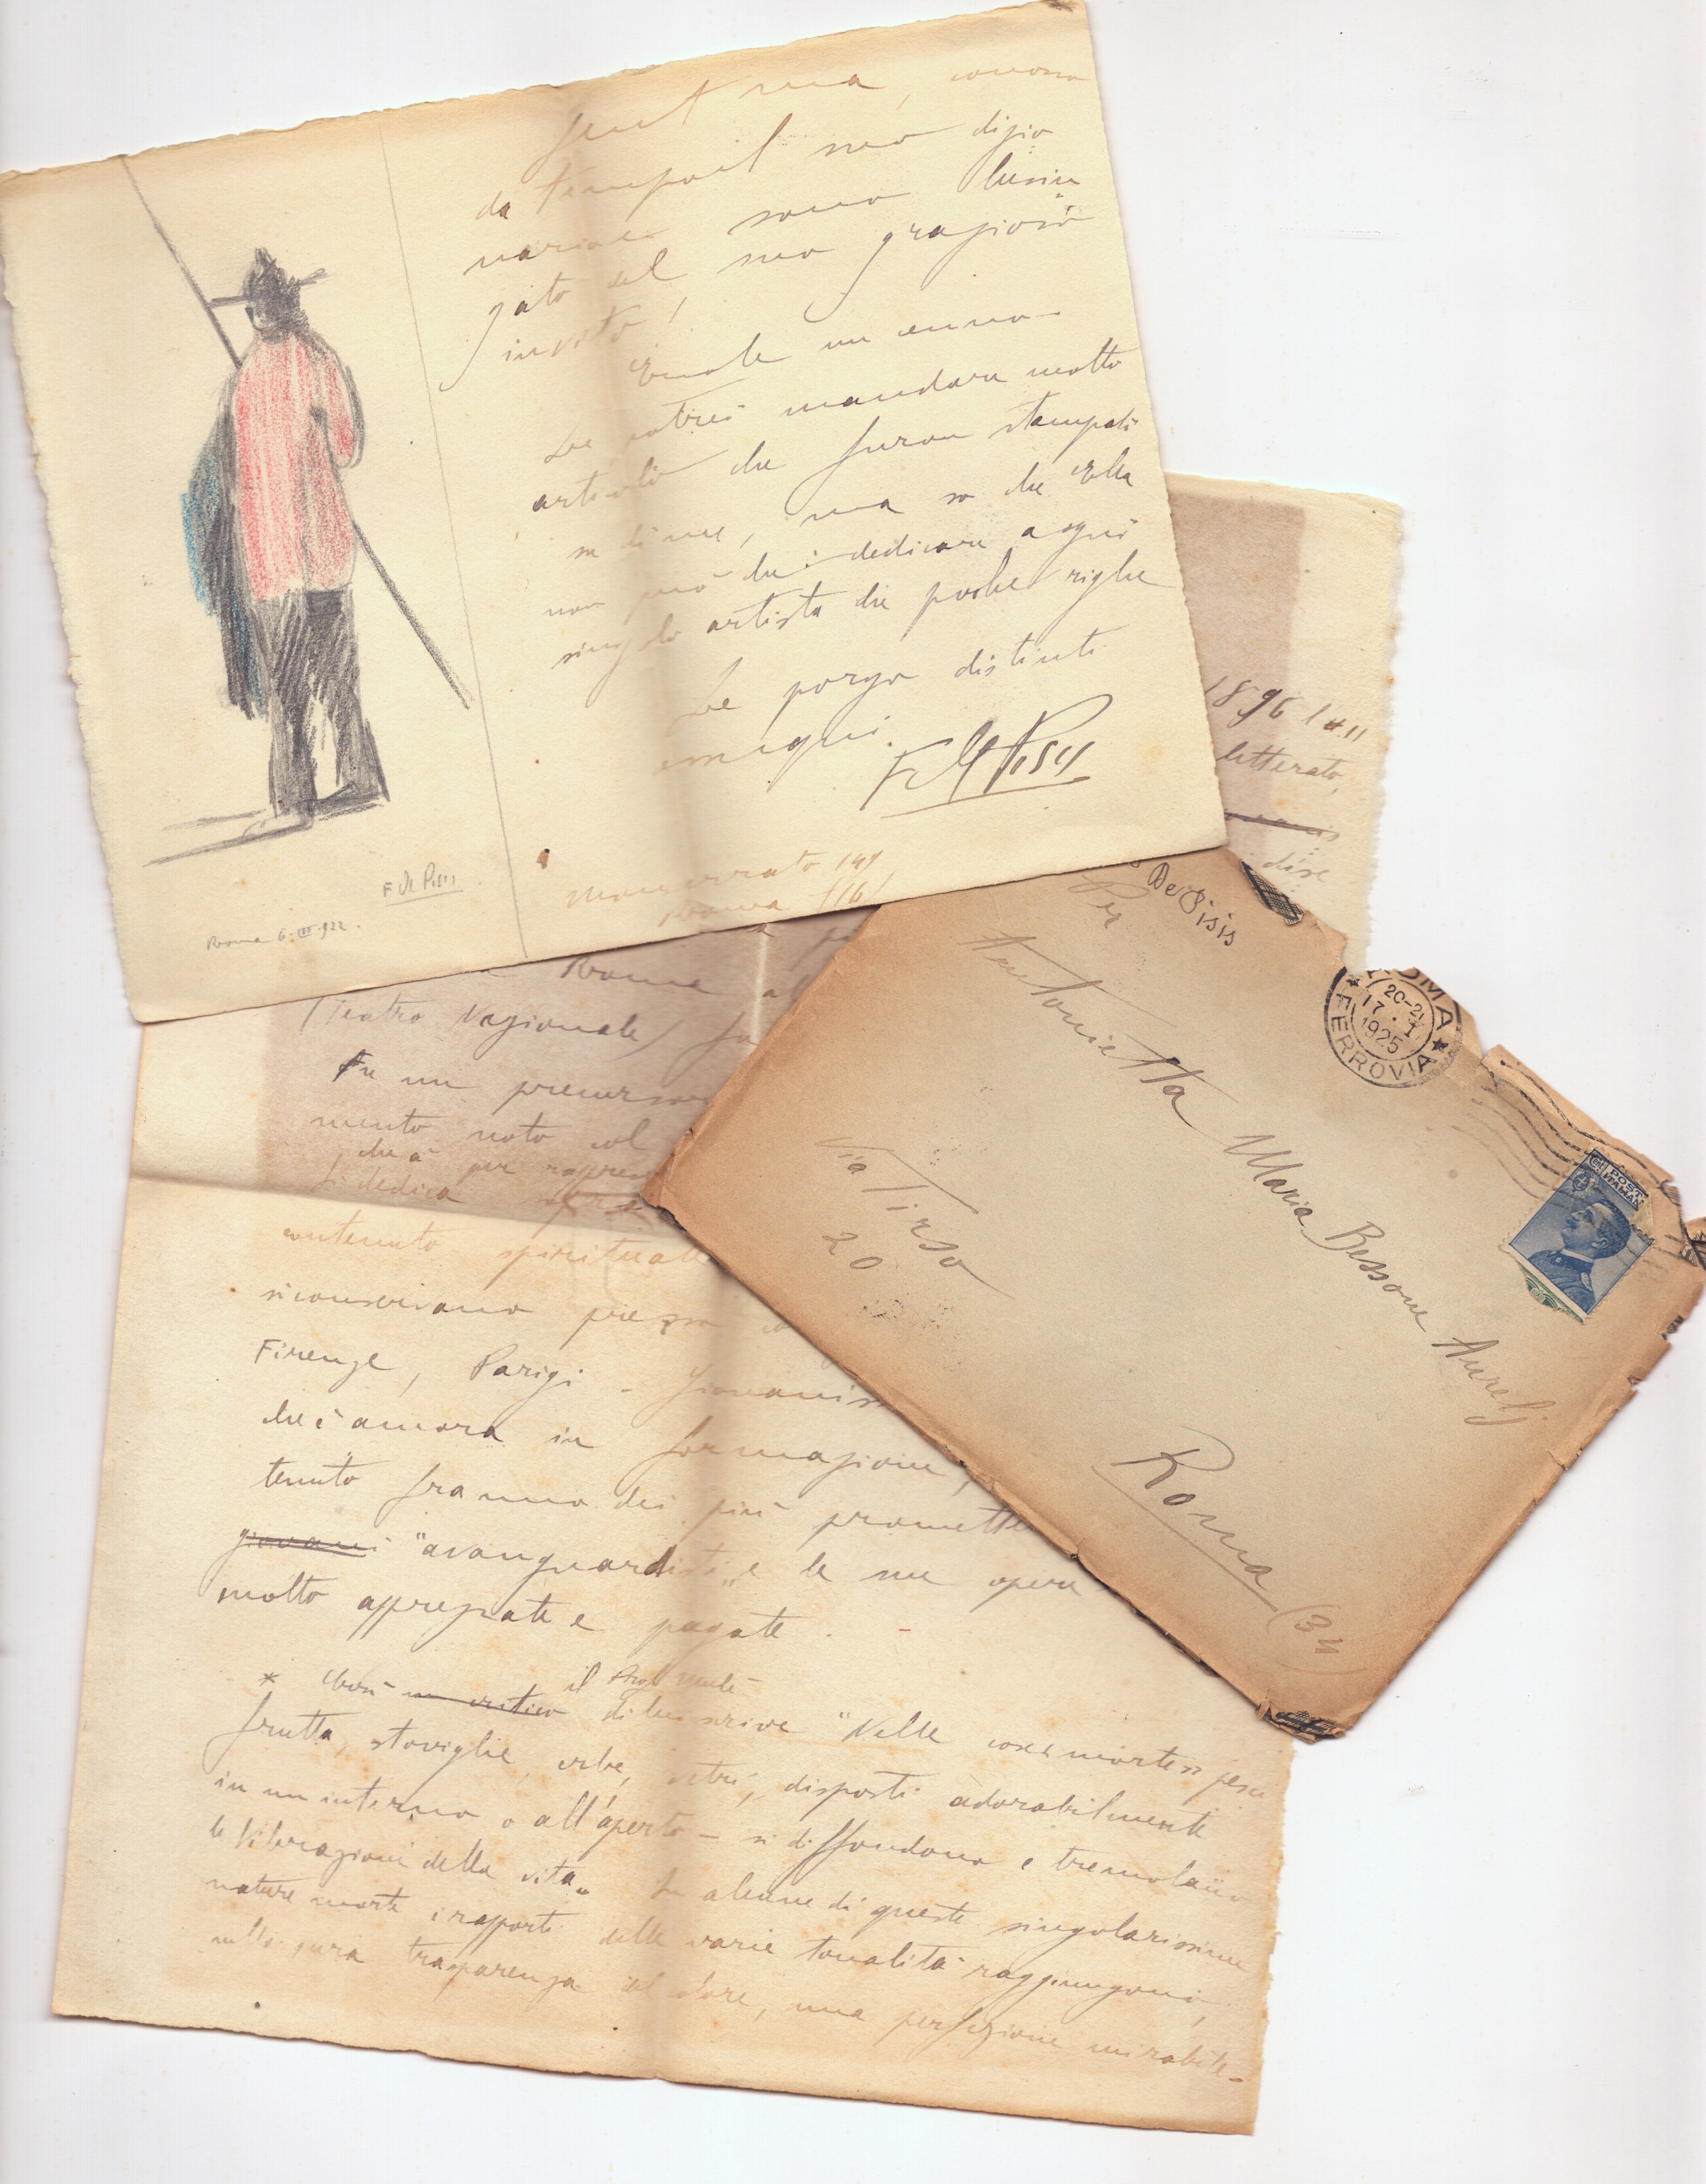 Gent ma, conosco
da tempo il suo dizio
nario e sono lusin
gato del suo grazioso
invito!
Eccole un cenno
Le potrei mandare molto
articoli che furon stampati
su di me, ma so che Ella
non può che dedicare a ogni
singolo artista che poche righe
Le porgo distinti
ossequi.
F. de Pisis
Monserrato 149
Roma (16)
F de Pisis
Roma 6.III.922.
1896
letterato,
Roma
(Teatro Nazionale)
Fu un precursore
mento noto col
che à per
si dedica
contenuto spirituale
si conservano presso
Firenze, Parigi - Giovaniss
che è ancora in formazione,
tenuto fra uno dei più promette
giovani "avanguardisti" e le sue opere
molto apprezzate e pagate.
* Così un critico il
di lui scrive "Nelle cose morte
frutta, stoviglie, erbe, vetri, disposti adorabilmente
in un interno o all'aperto - si diffondono e tremolano
le vibrazioni della vita" In alcune di queste singolarissime
nature morte i rapporti delle varie tonalità raggiungono,
nella pura trasparenza del colore, una perfezione mirabile-
De Pisis
Per
Antonietta Maria Bessone Aurelj
Via Tirso
20
Roma (34
ROMA
20-21
17.I
1925
FERROVIA
POSTE
ITALIANE